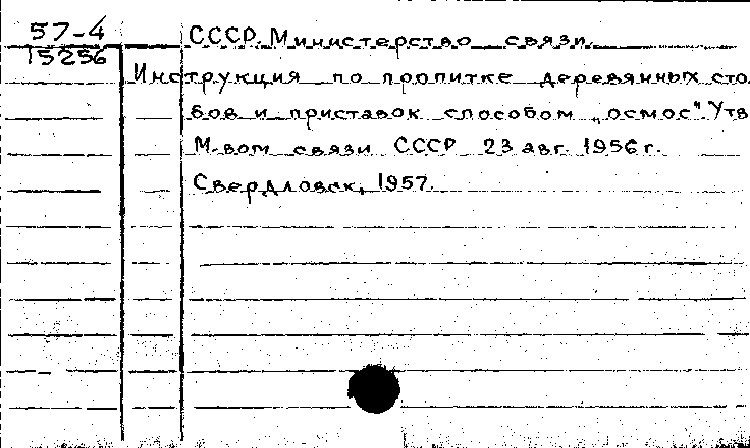 57-4
15256
СССР. Министерство связи.
Инструкция по пропитке деревянных сто
бов и приставок способом „осмос". Утв
М-вом связи СССР 23 авг. 1956 г.
Свердловск, 1957.